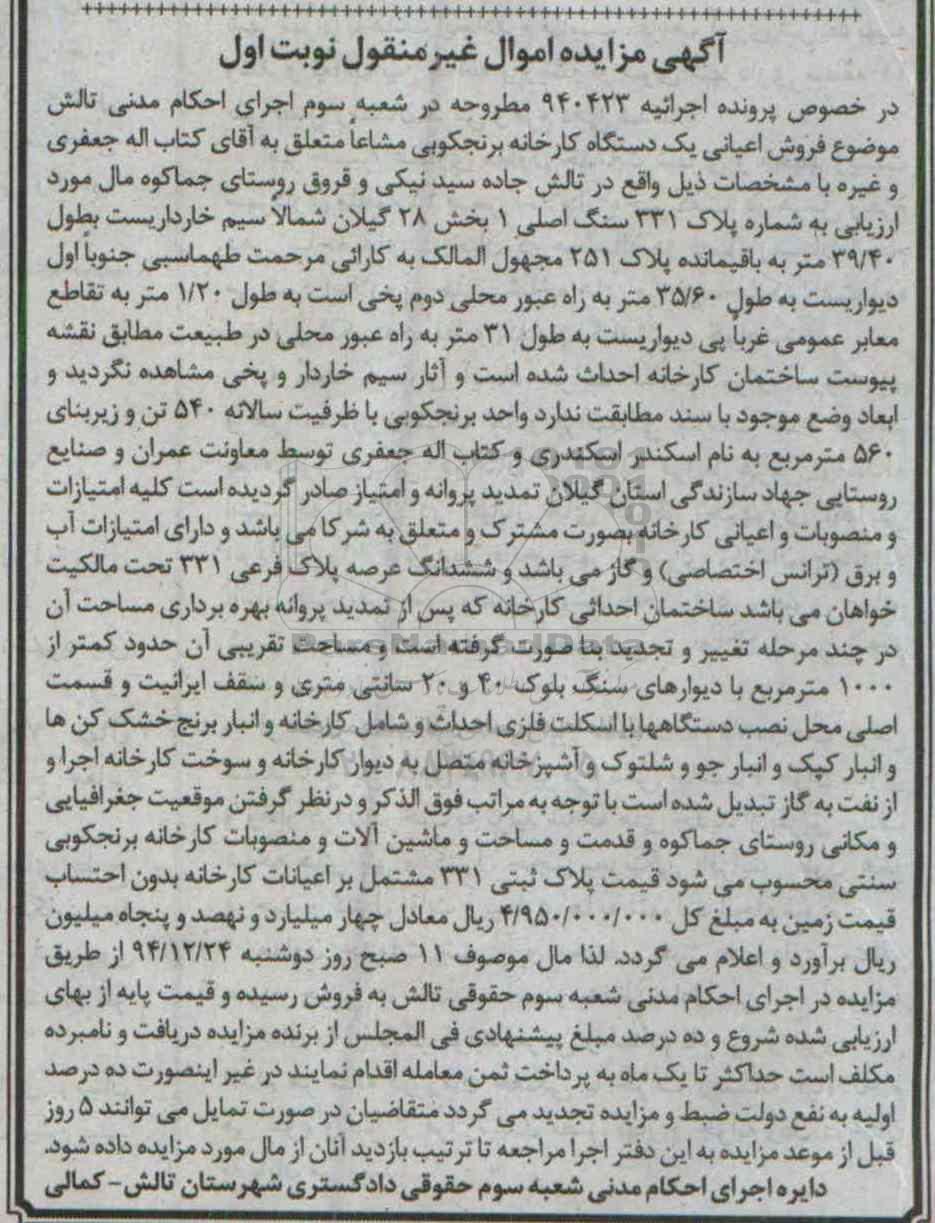 آگهی مزایده اموال غیرمنقول نوبت اول
در خصوص پرونده اجرائیه ۹۴۰۴۲۳ مطروحه در شعبه سوم اجرای احکام مدنی تالش
موضوع فروش اعیانی یک دستگاه کارخانه برنجکوبی مشاعاً متعلق به آقای کتاب اله جعفری
و غیره با مشخصات ذیل واقع در تالش جاده سید نیکی و قروق روستای جماکوه مال مورد
ارزیابی به شماره پلاک ۳۳۱ سنگ اصلی ۱ بخش ۲۸ گیلان شمالاً سیم خارداریست بطول
۳۹/۴۰ متر به باقیمانده پلاک ۲۵۱ مجهول المالک به کارائی مرحمت طهماسبی جنوباً اول
دیواریست به طول ۳۵/۶۰ متر به راه عبور محلی دوم پخی است به طول ۱/۲۰ متر به تقاطع
معابر عمومی غرباً پی دیواریست به طول ۳۱ متر به راه عبور محلی در طبیعت مطابق نقشه
پیوست ساختمان کارخانه احداث شده است و آثار سیم خاردار و پخی مشاهده نگردید و
ابعاد وضع موجود با سند مطابقت ندارد واحد برنجکوبی با ظرفیت سالانه ۵۴۰ تن و زیربنای
۵۶۰ مترمربع به نام اسکندر اسکندری و کتاب اله جعفری توسط معاونت عمران و صنایع
روستایی جهاد سازندگی استان گیلان تمدید پروانه و امتیاز صادر گردیده است کلیه امتیازات
و منصوبات و اعیانی کارخانه بصورت مشترک و متعلق به شرکا می باشد و دارای امتیازات آب
و برق (ترانس اختصاصی) و گاز می باشد و ششدانگ عرصه پلاک فرعی ۳۳۱ تحت مالکیت
خواهان می باشد ساختمان احداثی کارخانه که پس از تمدید پروانه بهره برداری مساحت آن
در چند مرحله تغییر و تجدید بنا صورت گرفته است و مساحت تقریبی آن حدود کمتر از
۱۰۰۰ مترمربع با دیوارهای سنگ بلوک ۴۰ و ۲۰ سانتی متری و سقف ایرانیت و قسمت
اصلی محل نصب دستگاهها با اسکلت فلزی احداث و شامل کارخانه و انبار برنج خشک کن ها
و انبار کپک و انبار جو و شلتوک و آشپزخانه متصل به دیوار کارخانه و سوخت کارخانه اجرا و
از نفت به گاز تبدیل شده است با توجه به مراتب فوق الذکر و درنظر گرفتن موقعیت جغرافیایی
و مکانی روستای جماکوه و قدمت و مساحت و ماشین آلات و منصوبات کارخانه برنجکوبی
سنتی محسوب می شود قیمت پلاک ثبتی ۳۳۱ مشتمل بر اعیانات کارخانه بدون احتساب
قیمت زمین به مبلغ کل ۴/۹۵۰/۰۰۰/۰۰۰ ریال معادل چهار میلیارد و نهصد و پنجاه میلیون
ریال برآورد و اعلام می گردد. لذا مال موصوف ۱۱ صبح روز دوشنبه ۹۴/۱۲/۲۴ از طریق
مزایده در اجرای احکام مدنی شعبه سوم حقوقی تالش به فروش رسیده و قیمت پایه از بهای
ارزیابی شده شروع و ده درصد مبلغ پیشنهادی فی المجلس از برنده مزایده دریافت و نامبرده
مکلف است حداکثر تا یک ماه به پرداخت ثمن معامله اقدام نمایند در غیر اینصورت ده درصد
اولیه به نفع دولت ضبط و مزایده تجدید می گردد متقاضیان در صورت تمایل می توانند ۵ روز
قبل از موعد مزایده به این دفتر اجرا مراجعه تا ترتیب بازدید آنان از مال مورد مزایده داده شود.
دایره اجرای احکام مدنی شعبه سوم حقوقی دادگستری شهرستان تالش- کمالی